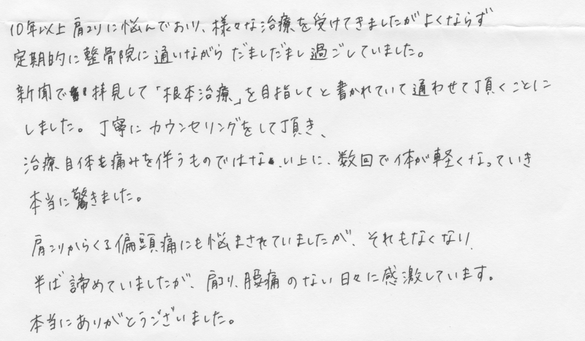 10年以上肩コリに悩んでおり、様々な治療を受けてきましたがよくならず
定期的に整骨院に通いながらだましだまし過ごしていました。
新聞で拝見して「根本治療」を目指してと書かれていて通わせて頂くことに
しました。丁寧にカウンセリングをして頂き、
治療自体も痛みを伴うものではない上に、数回で体が軽くなっていき
本当に驚きました。
肩コリからくる偏頭痛にも悩まされていましたが、それもなくなり
半ば諦めていましたが、肩コリ、腰痛のない日々に感激しています。
本当にありがとうございました。